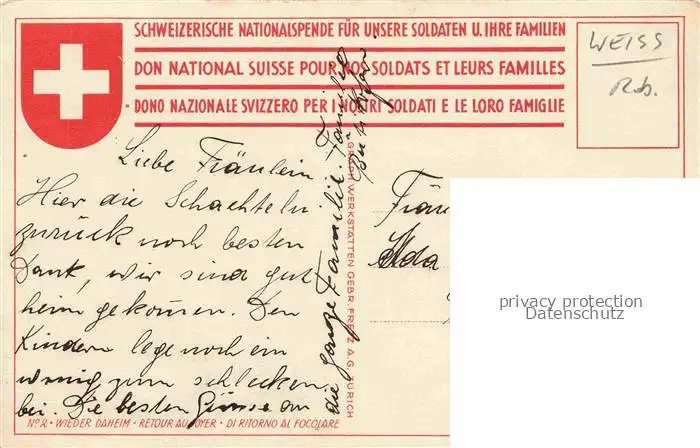 SCHWEIZERISCHE NATIONALSPENDE FÜR UNSERE SOLDATEN U. IHRE FAMILIEN
DON NATIONAL SUISSE POUR NOS SOLDATS ET LEURS FAMILLES
DONO NAZIONALE SVIZZERO PER I NOSTRI SOLDATI E LE LORO FAMIGLIE
WEISS
Rob.
Liebe Fräulein.
Hier die Schachteln
zurück noch besten
Dank, wir sind gut
heim gekommen. Den
Kindern lege noch ein
wenig zum schlecken
bei. Die besten Grüsse an
die ganze Familie. Familie
GRAPH. WERKSTÄTTEN GEBR. FRETZ A.G. ZÜRICH
Fräu
Ida
privacy protection
Datenschutz
No 2 • WIEDER DAHEIM • RETOUR AU FOYER • DI RITORNO AL FOCOLARE